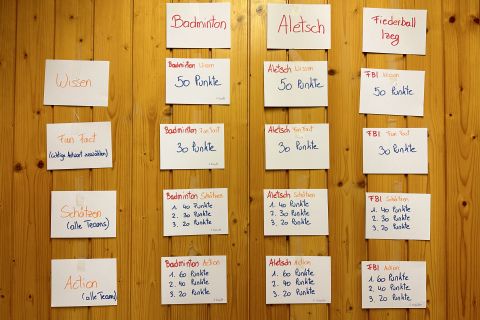 Badminton
Aletsch
Fiederball
Iseg
Wissen
Badminton Wissen
50 Punkte
Aletsch Wissen
50 Punkte
FBI Wissen
50 Punkte
Fun Fact
Badminton Fun Fact
30 Punkte
Aletsch Fun Fact
30 Punkte
FBI Fun Fact
30 Punkte
Schätzen
(alle Teams)
Badminton Schätzen
1. 40 Punkte
2. 30 Punkte
3. 20 Punkte
Aletsch Schätzen
1. 40 Punkte
2. 30 Punkte
3. 20 Punkte
FBI Schätzen
1. 40 Punkte
2. 30 Punkte
3. 20 Punkte
Action
(alle Teams)
Badminton Action
1. 60 Punkte
2. 40 Punkte
3. 20 Punkte
Aletsch Action
1. 60 Punkte
2. 40 Punkte
3. 20 Punkte
FBI Action
1. 60 Punkte
2. 40 Punkte
3. 20 Punkte